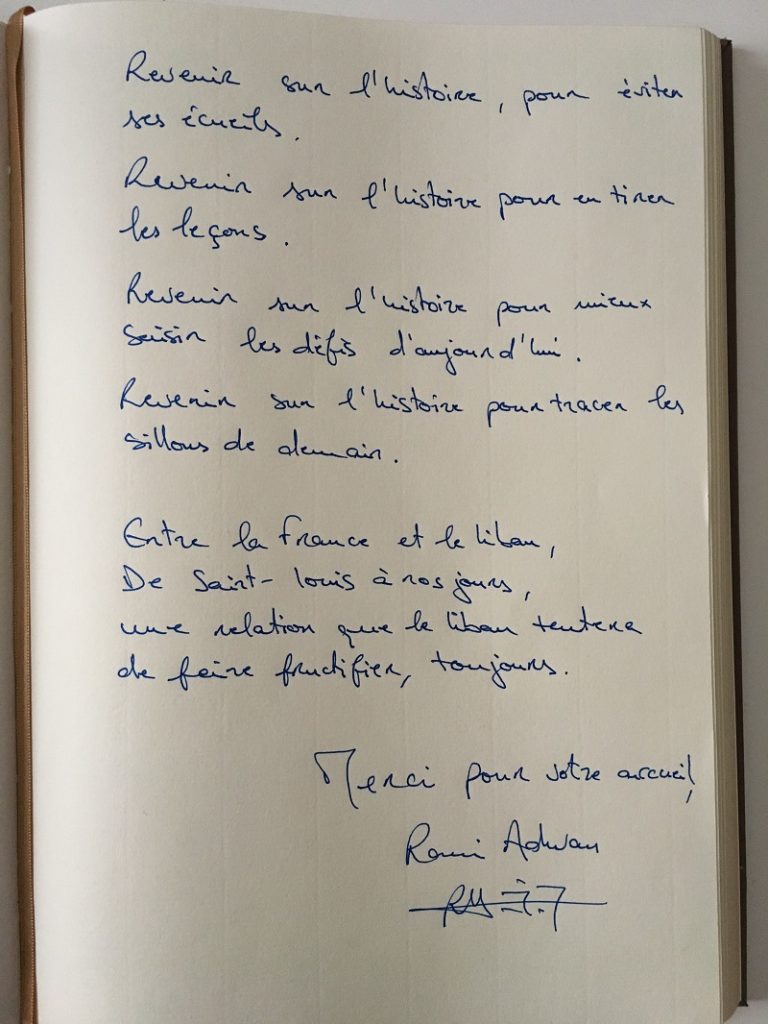 Revenir sur l'histoire, pour éviter
ses écueils.
Revenir sur l'histoire pour en tirer
les leçons.
Revenir sur l'histoire pour mieux
saisir les défis d'aujourd'hui.
Revenir sur l'histoire pour tracer les
sillons de demain.
Entre la France et le Liban,
De Saint-Louis à nos jours,
une relation que le Liban tentera
de faire fructifier, toujours.
Merci pour votre accueil,
Rami Adwan